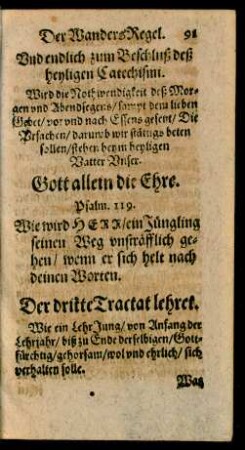 Der Wanders Regel. 91
Vnd endlich zum Beschluß deß
heyligen Catechismi.
Wird die Nothwendigkeit deß Mor-
gen vnd Abendsegens / sampt dem lieben
Gebet / vor vnd nach Essens gesetzt / Die
Vrsachen / darumb wir stätigs beten
sollen / stehen beym heyligen
Vatter Vnser.
Gott allein die Ehre.
Psalm. 119.
Wie wird HERR / ein Jüngling
seinen Weg vnsträfflich ge-
hen / wenn er sich helt nach
deinen Worten.
Der dritte Tractat lehret.
Wie ein Lehr Jung / von Anfang der
Lehrjahr / biß zu Ende derselbigen / Gott-
fürchtig / gehorsam / wol vnd ehrlich / sich
verhalten solle.
Was